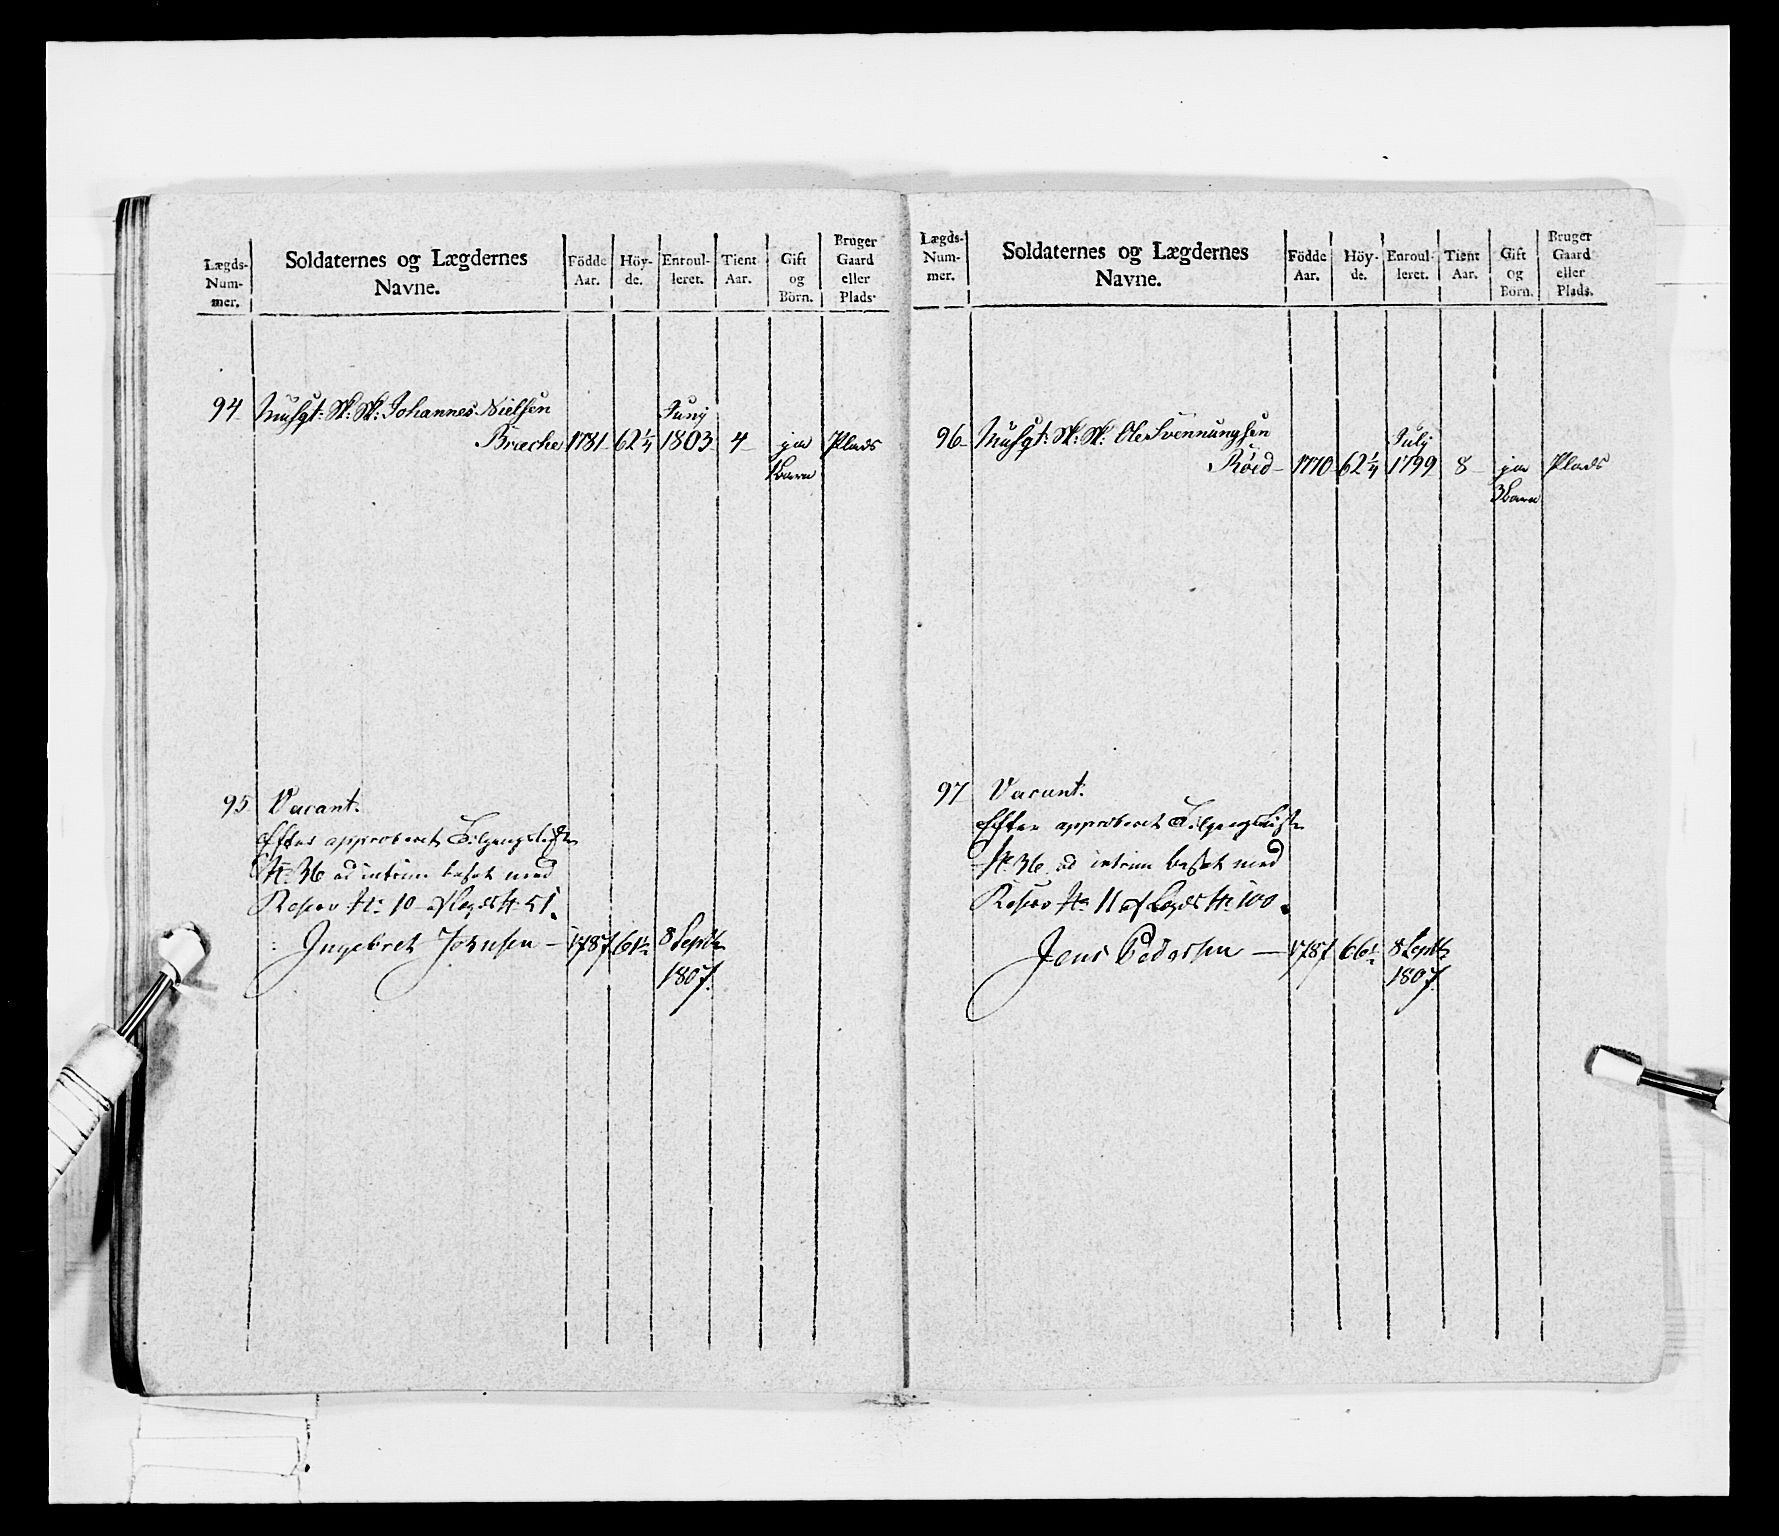 Lægds-Num-mer. Soldaternes og Lægdernes Navne. Födde Aar. Höy-de. Enroul-leret. Tient Aar. Gift og Börn. Bruger Gaard eller Plads.
94 Musqt: Sk: Sk: Johannes Nielsen Junj
Bræche 1781 62 1/4 1803 4 ja Plads
1 Barn
95 Vacant.
Efter approberet Tilgangsliste
No 36 ad intrim besat med
Reserv No 10 af Lægds No 51.
Ingebret Johnsen — 1787 61 1/2 8 Septbr
1807.
Lægds-Num-mer. Soldaternes og Lægdernes Navne. Födde Aar. Höy-de. Enroul-leret. Tient Aar. Gift og Börn. Bruger Gaard eller Plads.
96 Musqt: Sk: Sk: Ole Svennungsen Julj
Röed 1770 62 1/4 1799 8 ja Plads
3 Barn
97 Vacant.
Efter approberet Tilgangsliste
No 36 ad intrim besat med
Reserv No 11 af Lægds No 100.
Jens Pedersen — 1787 66 1/2 8 Septbr
1807.